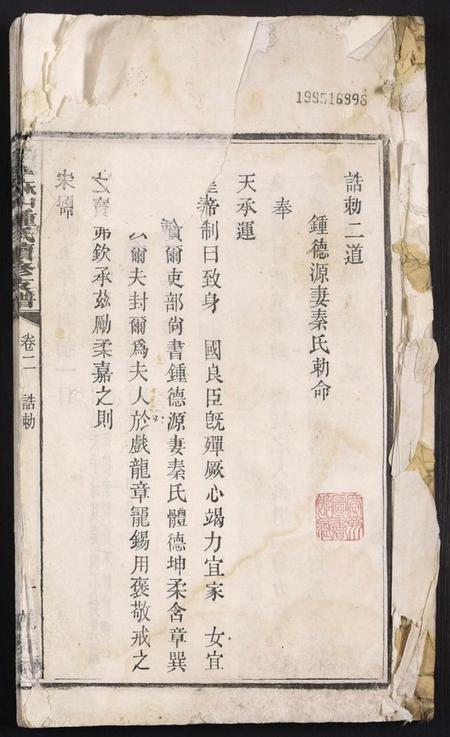 199516996
誥勅二道
鍾德源妻秦氏勅命
奉
天承運
帝制曰致身 國良臣旣殫厥心竭力宜家 女宜
爾吏部尙書鍾德源妻秦氏體德坤柔含章巽
爾夫封爾爲夫人於戲龍章寵錫用褒敬戒之
欽承茲勵柔嘉之則
之寶
鍾氏續修家譜
卷二
誥勅